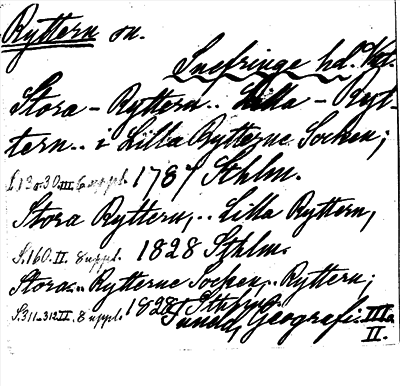 Ryttern sn.
Snefringe hd. Vstm.
Stora - Ryttern.. Lilla - Ryt-
tern.. i Lilla Rytterne Socken;
S. 13 o. 30. III. 6 uppl. 1787 Sthlm.
Stora Ryttern,.. Lilla Ryttern,
S. 160. II. 8 uppl. 1828 Sthlm.
Stora.. Rytterne Socken,.. Ryttern;
S. 311-312 II. 8 uppl. 1828 Sthlm.
Tuneld, Geografi. III o.
II.